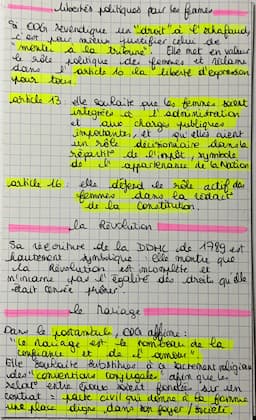 libertés politiques pour les femmes
Si ODG revendique un "droit" à l'échafaud,
c'est pour mieux justifier celui de
"monter à la tribune". Elle met en valeur
le rôle politique des femmes et réclame
dans l'article 10 la liberté d'expression
pour tous
article 13 : elle souhaite que les femmes soient
intégrées à l'administration
et aux charges publiques
importantes, et qu'elles aient
un rôle décisionnaire dans la
répartit° de l'impôt, symbole
de l'appartenance de la Nation
article 16 : elle défend le rôle actif des
femmes dans la rédact°
de la constitution.
la Révolution
Sa réécriture de la DDHC de 1789 est
hautement symbolique. Elle montre que
la Révolution est incomplète et
n'incarne pas l'égalité des droits qu'elle
était censée prôner.
le Mariage
Dans le postambule, ODG affirme :
"le mariage est le tombeau de la
confiance et de l'amour".
Elle souhaite substituer à ce sacrement religieux
des "conventions conjugales" afin que les
relat° entre époux soient fondées sur un
contrat = pacte civil qui donne à la femme
une place digne dans son foyer / société